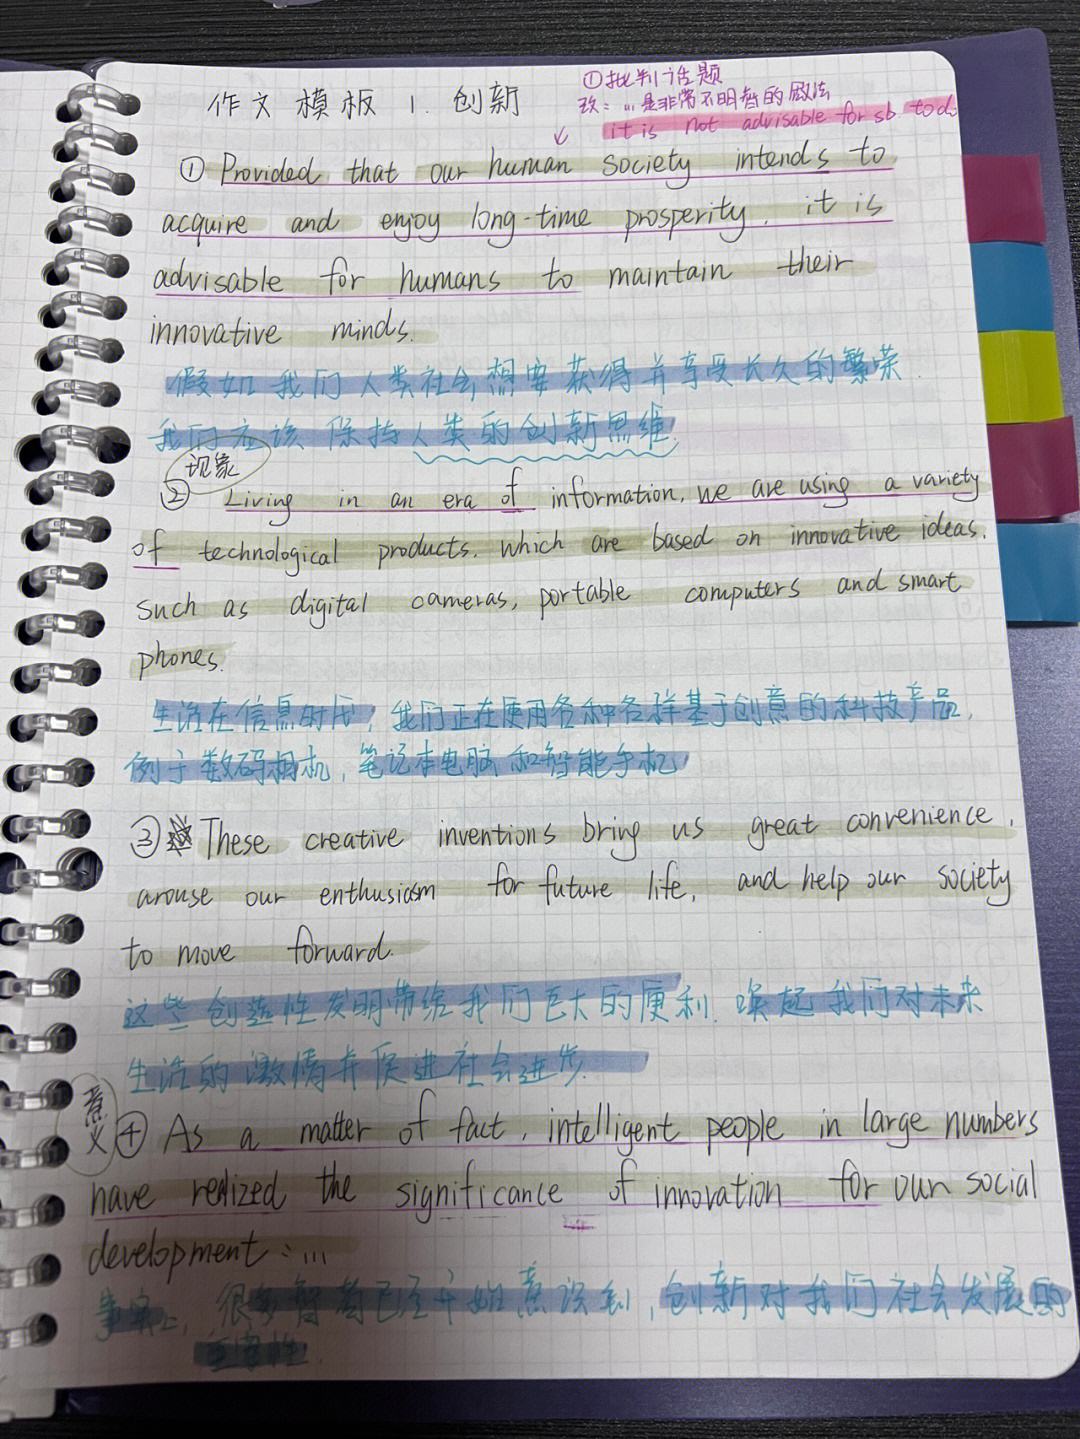 作文模板 1. 创新
①批判话题
改: ... 是非常不明智的做法
it is not advisable for sb. to do
① Provided that our human society intends to
acquire and enjoy long-time prosperity, it is
advisable for humans to maintain their
innovative minds.
假如我们人类社会想要获得并享受长久的繁荣.
我们应该保持人类的创新思维.
现象
② Living in an era of information, we are using a variety
of technological products, which are based on innovative ideas,
such as digital cameras, portable computers and smart
phones.
生活在信息时代, 我们正在使用各种各样基于创意的科技产品,
例于数码相机, 笔记本电脑和智能手机
③ These creative inventions bring us great convenience,
arouse our enthusiasm for future life, and help our society
to move forward.
这些创造性发明带给我们巨大的便利, 唤起我们对未来
生活的激情并促进社会进步.
意义
④ As a matter of fact, intelligent people in large numbers
have realized the significance of innovation for our social
development: ...
事实上, 很多智者已经开始意识到, 创新对我们社会发展的
重要性.